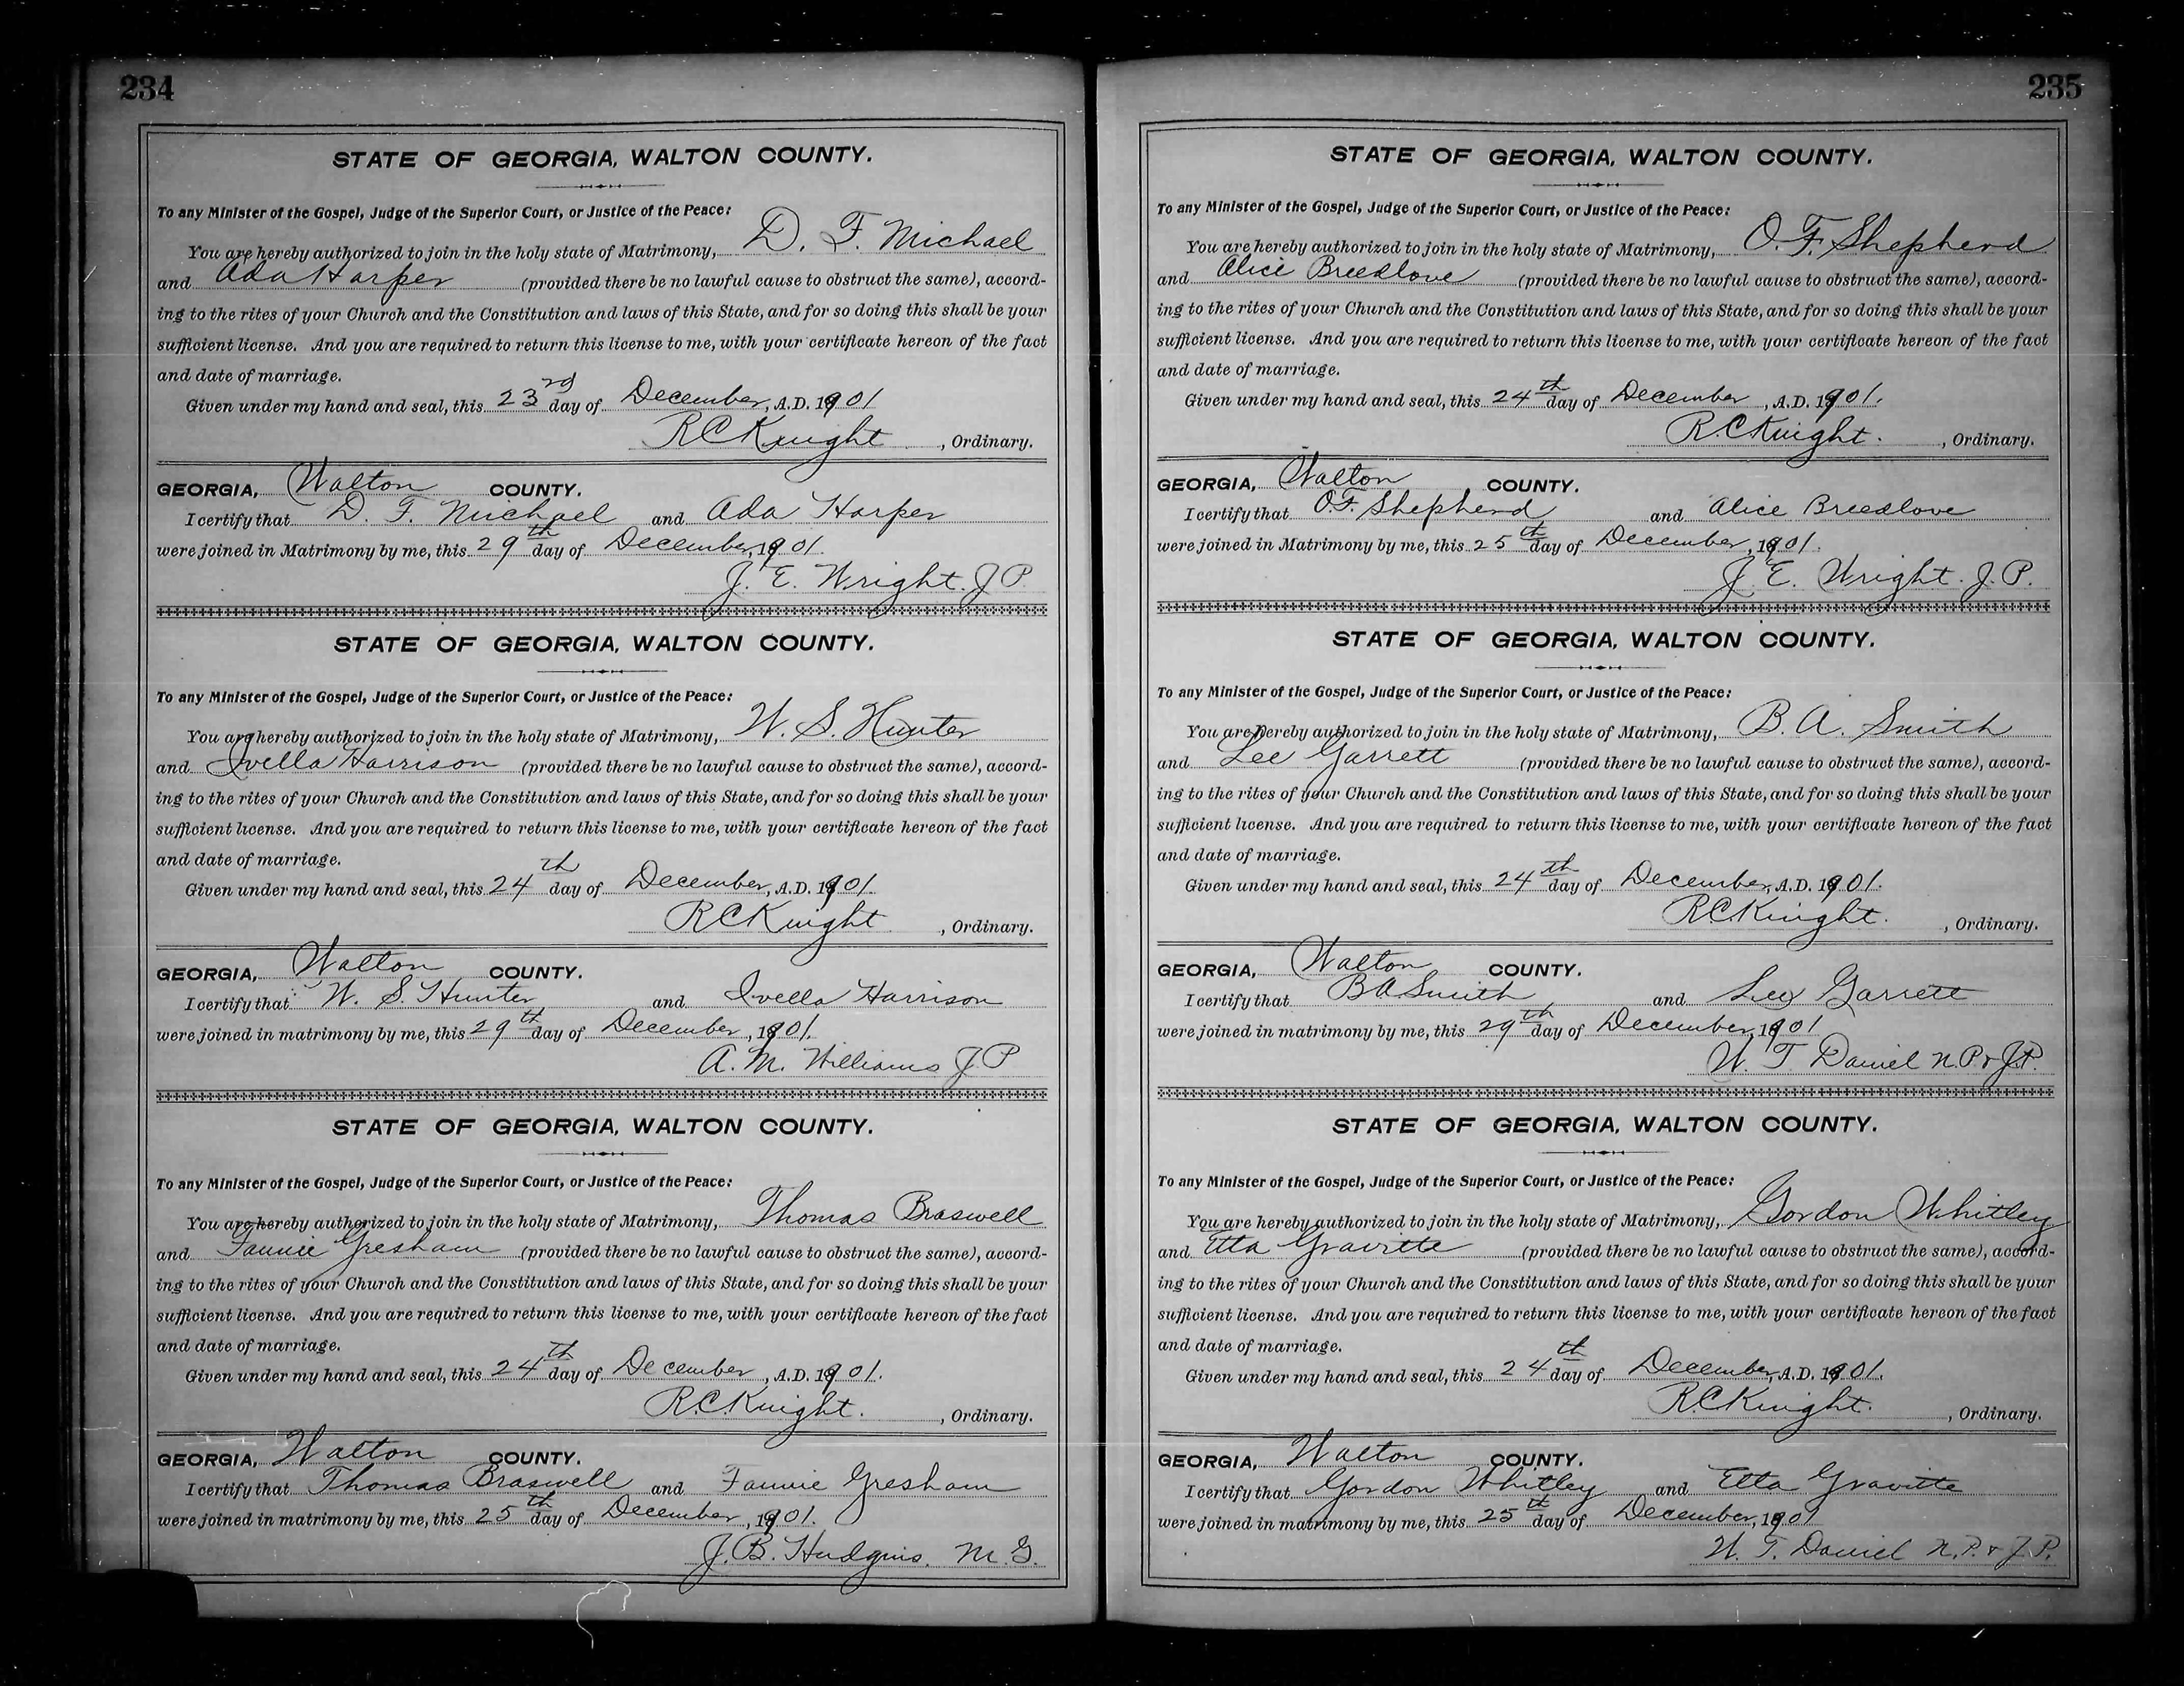 234
STATE OF GEORGIA, WALTON COUNTY.
To any Minister of the Gospel, Judge of the Superior Court, or Justice of the Peace:
You are hereby authorized to join in the holy state of Matrimony, D. F. Michael
and Ada Harper (provided there be no lawful cause to obstruct the same), accord-
ing to the rites of your Church and the Constitution and laws of this State, and for so doing this shall be your
sufficient license. And you are required to return this license to me, with your certificate hereon of the fact
and date of marriage.
Given under my hand and seal, this 23rd day of December, A.D. 1901
R C Knight, Ordinary.
GEORGIA, Walton COUNTY.
I certify that D. F. Michael and Ada Harper
were joined in Matrimony by me, this 29th day of December, 1901.
J. E. Wright. J P.
STATE OF GEORGIA, WALTON COUNTY.
To any Minister of the Gospel, Judge of the Superior Court, or Justice of the Peace:
You are hereby authorized to join in the holy state of Matrimony, W. S. Hunter
and Ivella Harrison (provided there be no lawful cause to obstruct the same), accord-
ing to the rites of your Church and the Constitution and laws of this State, and for so doing this shall be your
sufficient license. And you are required to return this license to me, with your certificate hereon of the fact
and date of marriage.
Given under my hand and seal, this 24th day of December, A.D. 1901.
R C Knight, Ordinary.
GEORGIA, Walton COUNTY.
I certify that W. S. Hunter and Ivella Harrison
were joined in matrimony by me, this 29th day of December, 1901.
A. M. Williams J P
STATE OF GEORGIA, WALTON COUNTY.
To any Minister of the Gospel, Judge of the Superior Court, or Justice of the Peace:
You are hereby authorized to join in the holy state of Matrimony, Thomas Braswell
and Fannie Gresham (provided there be no lawful cause to obstruct the same), accord-
ing to the rites of your Church and the Constitution and laws of this State, and for so doing this shall be your
sufficient license. And you are required to return this license to me, with your certificate hereon of the fact
and date of marriage.
Given under my hand and seal, this 24th day of December, A.D. 1901.
R.C. Knight., Ordinary.
GEORGIA, Walton COUNTY.
I certify that Thomas Braswell and Fannie Gresham
were joined in matrimony by me, this 25th day of December, 1901.
J. B. Hudgins. M. G.
235
STATE OF GEORGIA, WALTON COUNTY.
To any Minister of the Gospel, Judge of the Superior Court, or Justice of the Peace:
You are hereby authorized to join in the holy state of Matrimony, O. F. Shepherd
and Alice Breedlove (provided there be no lawful cause to obstruct the same), accord-
ing to the rites of your Church and the Constitution and laws of this State, and for so doing this shall be your
sufficient license. And you are required to return this license to me, with your certificate hereon of the fact
and date of marriage.
Given under my hand and seal, this 24th day of December, A.D. 1901.
R.C Knight., Ordinary.
GEORGIA, Walton COUNTY.
I certify that O.F. Shepherd and Alice Breedlove
were joined in Matrimony by me, this 25th day of December, 1901.
J. E. Wright. J. P.
STATE OF GEORGIA, WALTON COUNTY.
To any Minister of the Gospel, Judge of the Superior Court, or Justice of the Peace:
You are hereby authorized to join in the holy state of Matrimony, B. A. Smith
and Lee Garrett (provided there be no lawful cause to obstruct the same), accord-
ing to the rites of your Church and the Constitution and laws of this State, and for so doing this shall be your
sufficient license. And you are required to return this license to me, with your certificate hereon of the fact
and date of marriage.
Given under my hand and seal, this 24th day of December, A.D. 1901.
R.C. Knight., Ordinary.
GEORGIA, Walton COUNTY.
I certify that B A Smith and Lee Garrett
were joined in matrimony by me, this 29th day of December, 1901
W. T. Daniel N.P. & J.P.
STATE OF GEORGIA, WALTON COUNTY.
To any Minister of the Gospel, Judge of the Superior Court, or Justice of the Peace:
You are hereby authorized to join in the holy state of Matrimony, Gordon Whitley
and Etta Gravitte (provided there be no lawful cause to obstruct the same), accord-
ing to the rites of your Church and the Constitution and laws of this State, and for so doing this shall be your
sufficient license. And you are required to return this license to me, with your certificate hereon of the fact
and date of marriage.
Given under my hand and seal, this 24th day of December, A.D. 1901.
R.C Knight., Ordinary.
GEORGIA, Walton COUNTY.
I certify that Gordon Whitley and Etta Gravitte
were joined in matrimony by me, this 25th day of December, 1901
W. T. Daniel N.P. & J.P.